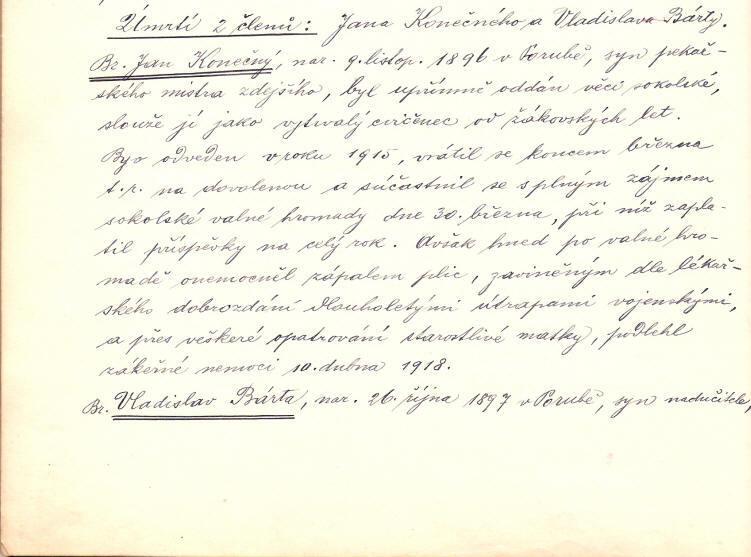 Úmrtí 2 členů: Jana Konečného a Vladislava Bárty.
Br. Jan Konečný, nar. 9. listop. 1896 v Porubě, syn pekař-
ského mistra zdejšího, byl upřímně oddán věci sokolské,
slouže jí jako vytrvalý cvičenec od žákovských let.
Byv odveden v roku 1915, vrátil se koncem března
t. r. na dovolenou a súčastnil se s plným zájmem
sokolské valné hromady dne 30. března, při níž zapla-
til příspěvky na celý rok. Avšak hned po valné hro-
madě onemocněl zápalem plic, zaviněným dle lékař-
ského dobrozdání dlouholetými útrapami vojenskými,
a přes veškeré opatrování starostlivé matky, podlehl
zákeřné nemoci 10. dubna 1918.
Br. Vladislav Bárta, nar. 26. října 1897 v Porubě, syn nadučitele,